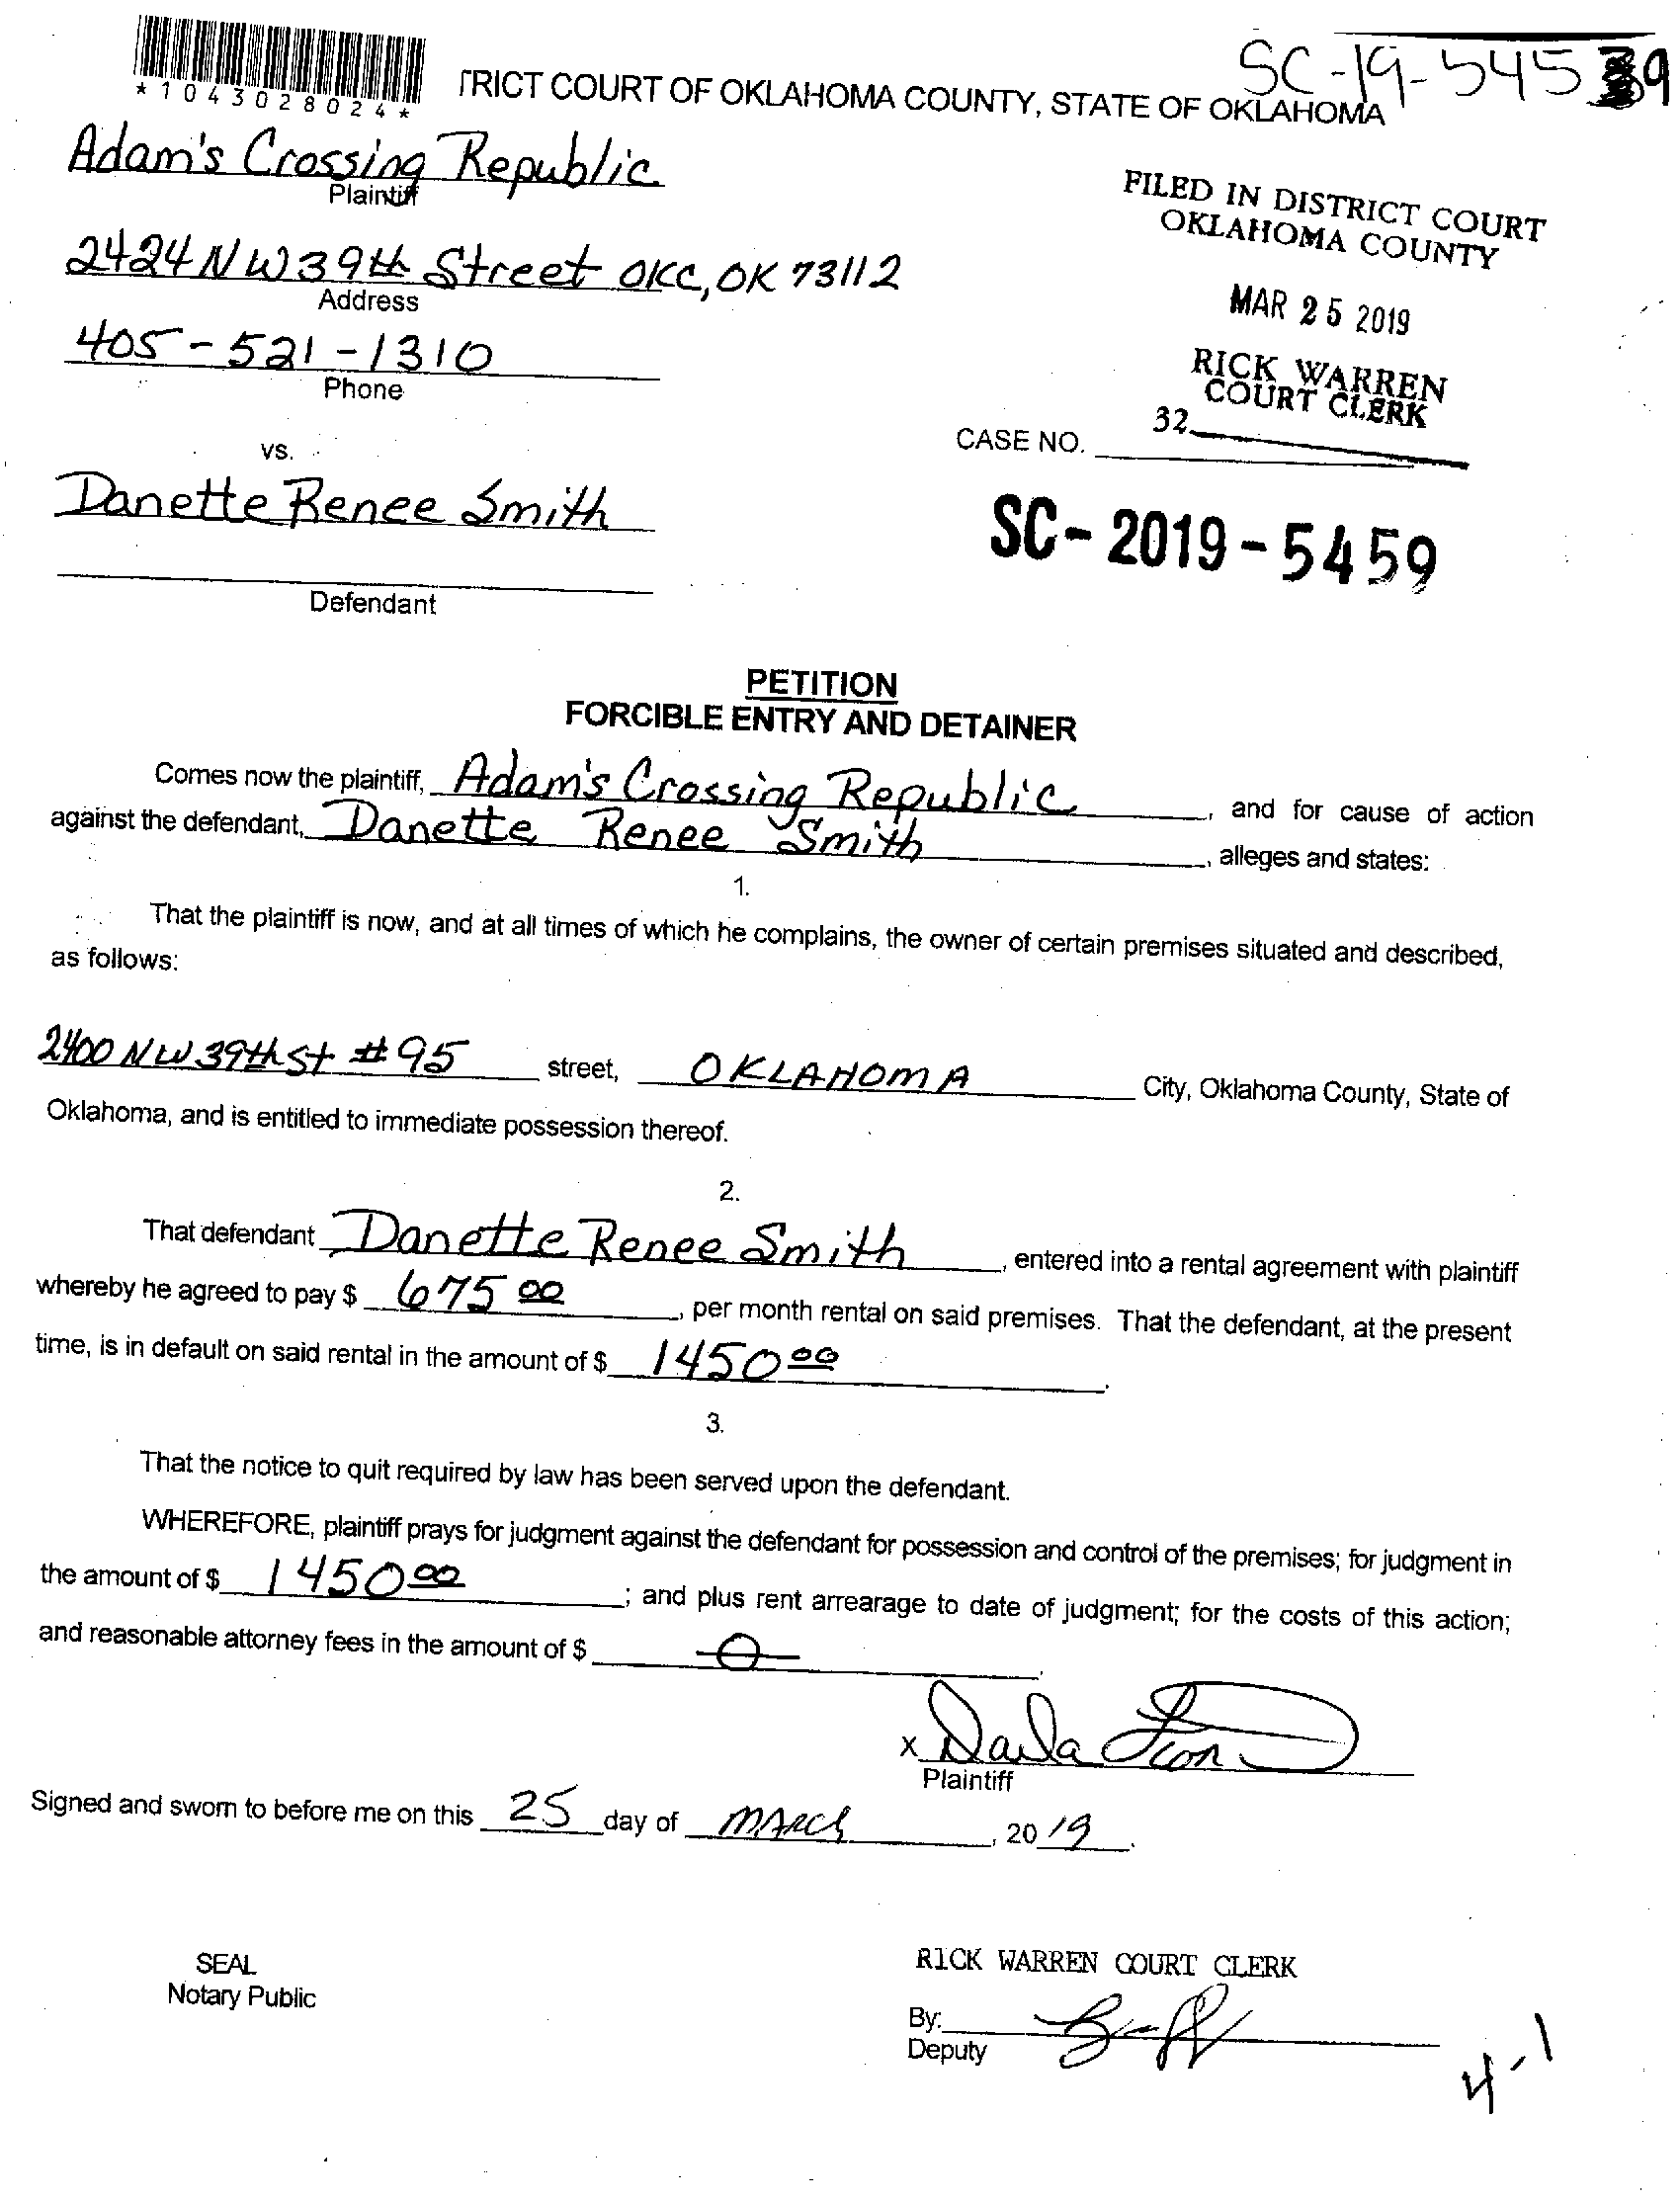 SC-19-5459
*1043028024*
TRICT COURT OF OKLAHOMA COUNTY, STATE OF OKLAHOMA
Adam's Crossing Republic
Plaintiff
FILED IN DISTRICT COURT
OKLAHOMA COUNTY
2424 NW 39th Street OKC, OK 73112
Address
MAR 25 2019
405-521-1310
Phone
RICK WARREN
COURT CLERK
32
CASE NO.
vs.
Danette Renee Smith
SC-2019-5459
Defendant
PETITION
FORCIBLE ENTRY AND DETAINER
Comes now the plaintiff, Adam's Crossing Republic, and for cause of action
against the defendant, Danette Renee Smith, alleges and states:
1.
That the plaintiff is now, and at all times of which he complains, the owner of certain premises situated and described,
as follows:
2400 NW 39th St #95 street, OKLAHOMA City, Oklahoma County, State of
Oklahoma, and is entitled to immediate possession thereof.
2.
That defendant Danette Renee Smith, entered into a rental agreement with plaintiff
whereby he agreed to pay $ 675 00, per month rental on said premises. That the defendant, at the present
time, is in default on said rental in the amount of $ 1450 00.
3.
That the notice to quit required by law has been served upon the defendant.
WHEREFORE, plaintiff prays for judgment against the defendant for possession and control of the premises; for judgment in
the amount of $ 1450 00; and plus rent arrearage to date of judgment; for the costs of this action;
and reasonable attorney fees in the amount of $ 0.
x Darla
Plaintiff
Signed and sworn to before me on this 25 day of MARCh, 2019.
SEAL
Notary Public
RICK WARREN COURT CLERK
By:
Deputy
4-1